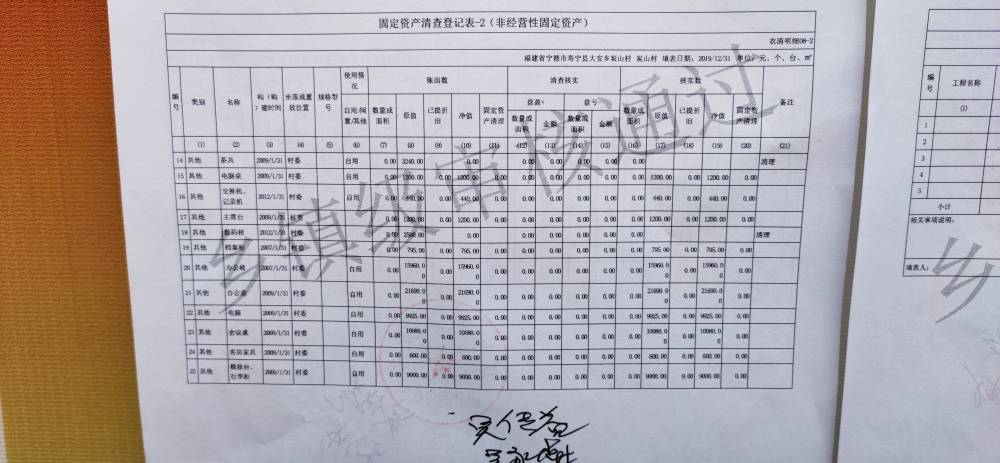 固定资产清查登记表-2（非经营性固定资产）
农清明细B08-2
福建省宁德市寿宁县大安乡炭山村 炭山村 填表日期：2019/12/31 单位：元、个、台、㎡
编号 类别 名称 构（购）建时间 坐落或置放位置 规格型号 使用情况 账面数 清查核实 核实数 备注
自用/闲置/其他 数量或面积 原值 已提折旧 净值 固定资产清理 盘盈+ 盘亏- 数量或面积 原值 已提折旧 净值 固定资产清理
数量或面积 金额 数量或面积 金额
(1) (2) (3) (4) (5) (6) (7) (8) (9) (10) (11) (12) (13) (14) (15) (16) (17) (18) (19) (20) (21)
14 其他 茶具 2009/1/31 村委 自用 0.00 3240.00 0.00 0.00 0.00 0.00 0.00 0.00 清理
15 其他 电脑桌 2009/1/31 村委 自用 0.00 1200.00 0.00 1200.00 0.00 0.00 0.00 0.00 0.00 0.00 1200.00 0.00 1200.00 0.00
16 其他 交换机、记录机 2012/1/31 村委 自用 0.00 440.00 0.00 440.00 0.00 0.00 0.00 0.00 0.00 0.00 440.00 0.00 440.00 0.00
17 其他 主席台 2009/1/31 村委 0.00 1200.00 0.00 1200.00 0.00 0.00 0.00 0.00 0.00 0.00 1200.00 0.00 1200.00 0.00
18 其他 数码相 2012/1/31 村委 0.00 2500.00 0.00 0.00 0.00 0.00 0.00 0.00 清理
19 其他 档案柜 2007/1/31 村委 0.00 795.00 0.00 795.00 0.00 0.00 0.00 0.00 0.00 0.00 795.00 0.00 795.00 0.00
20 其他 办公椅 2007/1/31 村委 自用 0.00 15960.00 0.00 15960.00 0.00 0.00 0.00 0.00 0.00 0.00 15960.00 0.00 15960.00 0.00
21 其他 办公桌 2009/1/31 村委 自用 0.00 21690.00 0.00 21690.00 0.00 0.00 0.00 0.00 0.00 0.00 21690.00 0.00 21690.00 0.00
22 其他 电脑 2009/1/31 村委 自用 0.00 9925.00 0.00 9925.00 0.00 0.00 0.00 0.00 0.00 0.00 9925.00 0.00 9925.00 0.00
23 其他 会议桌 2009/1/31 村委 自用 0.00 10080.00 0.00 10080.00 0.00 0.00 0.00 0.00 0.00 0.00 10080.00 0.00 10080.00 0.00
24 其他 客房家具 2009/1/31 村委 自用 0.00 600.00 0.00 600.00 0.00 0.00 0.00 0.00 0.00 0.00 600.00 0.00 600.00 0.00
25 其他 梳妆台、行李柜 2009/1/31 村委 自用 0.00 9000.00 0.00 9000.00 0.00 0.00 0.00 0.00 0.00 0.00 9000.00 0.00 9000.00 0.00
乡镇级审核通过
编号 工程名称
(1)
1
2
3
4
5
小计
相关事项说明：
填表人：
乡